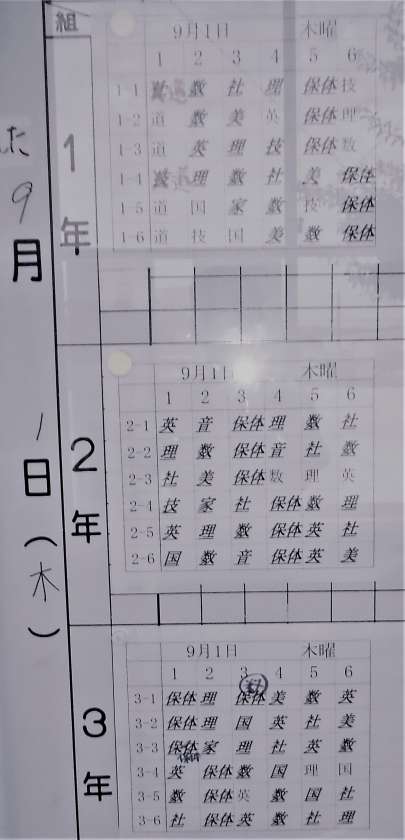 組
9月1日 木曜
1 2 3 4 5 6
1-1 数 社 理 保体 技
1-2 道 数 美 英 保体 理
1-3 道 英 理 技 保体 数
1-4 道 理 数 社 美 保体
1-5 道 国 家 数 技 保体
1-6 道 技 国 美 数 保体
1年
9月1日(木)
9月1日 木曜
1 2 3 4 5 6
2-1 英 音 保体 理 数 社
2-2 理 数 保体 音 社 数
2-3 社 美 保体 数 理 英
2-4 技 家 社 保体 数 理
2-5 英 理 数 保体 英 社
2-6 国 数 音 保体 英 美
2年
9月1日 木曜
1 2 3 4 5 6
3-1 保体 理 保体 美 数 英
3-2 保体 理 国 英 社 美
3-3 保体 家 理 社 英 数
3-4 英 保体 数 国 理 国
3-5 数 保体 英 数 国 社
3-6 社 保体 英 数 社 理
3年